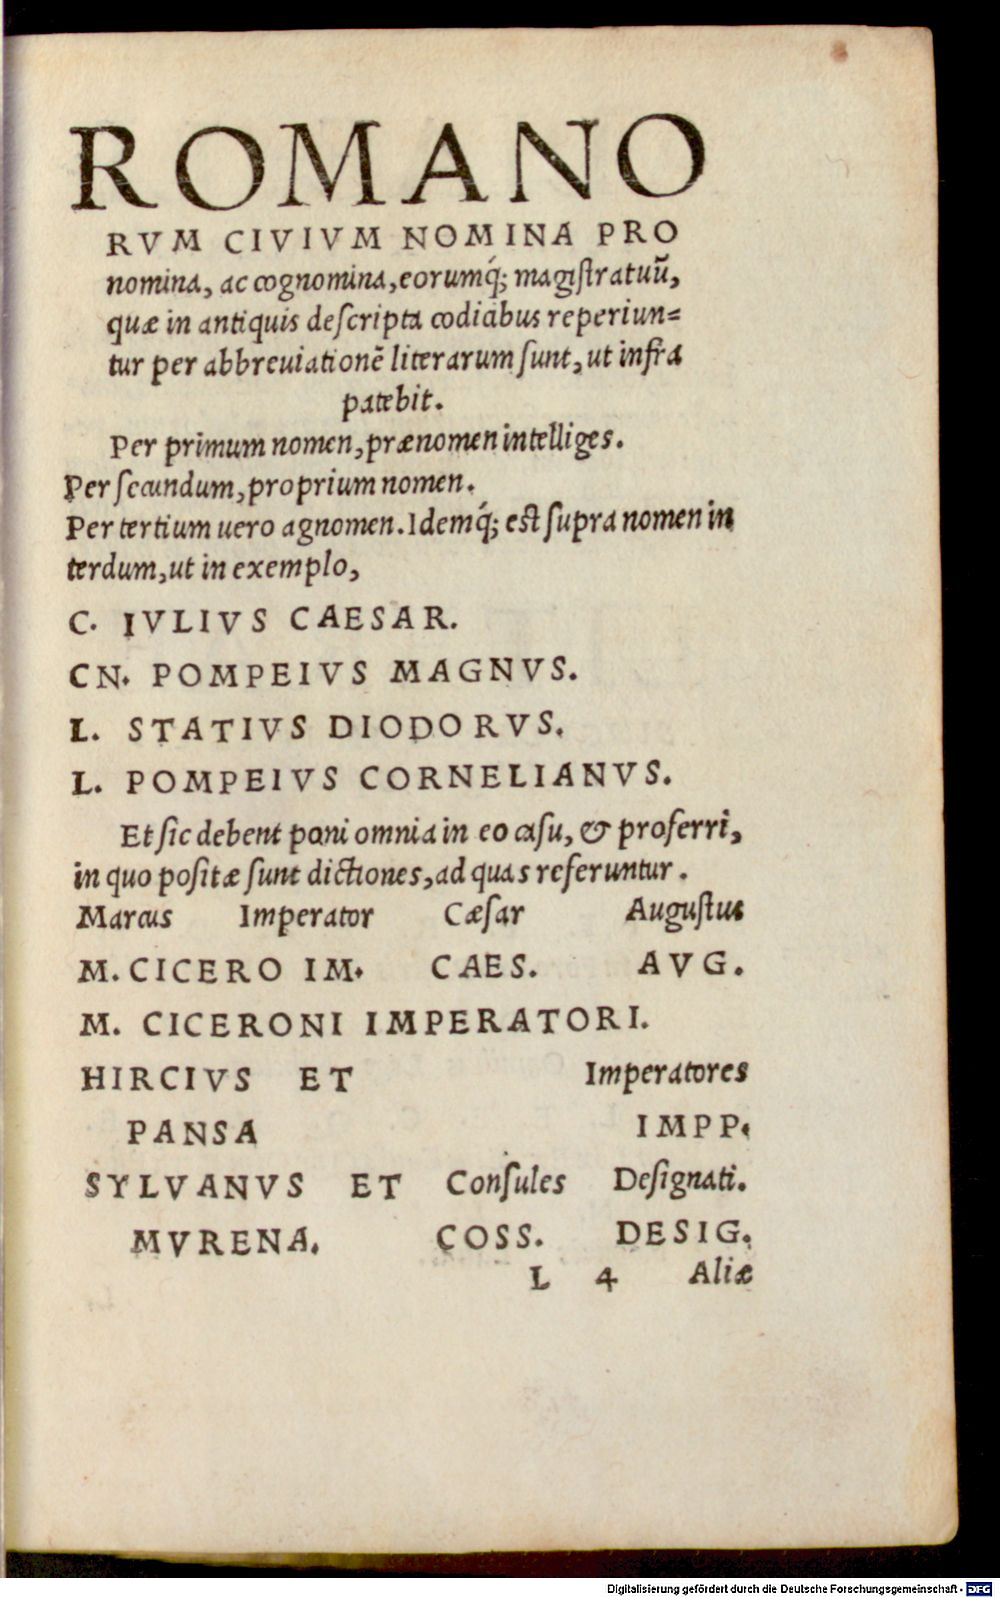 ROMANO
RVM CIVIVM NOMINA PRO
nomina, ac cognomina, eorumq́; magiſtratuũ,
quæ in antiquis deſcripta codicibus reperiun=
tur per abbreuiationẽ literarum ſunt, ut infra
patebit.
Per primum nomen, prænomen intelliges.
Per ſecundum, proprium nomen.
Per tertium uero agnomen. Idemq́; eſt ſupra nomen in
terdum, ut in exemplo,
C. IVLIVS CAESAR.
CN. POMPEIVS MAGNVS.
L. STATIVS DIODORVS.
L. POMPEIVS CORNELIANVS.
Et ſic debent poni omnia in eo caſu, & proferri,
in quo poſitæ ſunt dictiones, ad quas referuntur.
Marcus Imperator Cæſar Auguſtus
M. CICERO IM. CAES. AVG.
M. CICERONI IMPERATORI.
HIRCIVS ET Imperatores
PANSA IMPP.
SYLVANVS ET Conſules Deſignati.
MVRENA. COSS. DESIG.
L 4 Aliæ
Digitalisierung gefördert durch die Deutsche Forschungsgemeinschaft - DFG